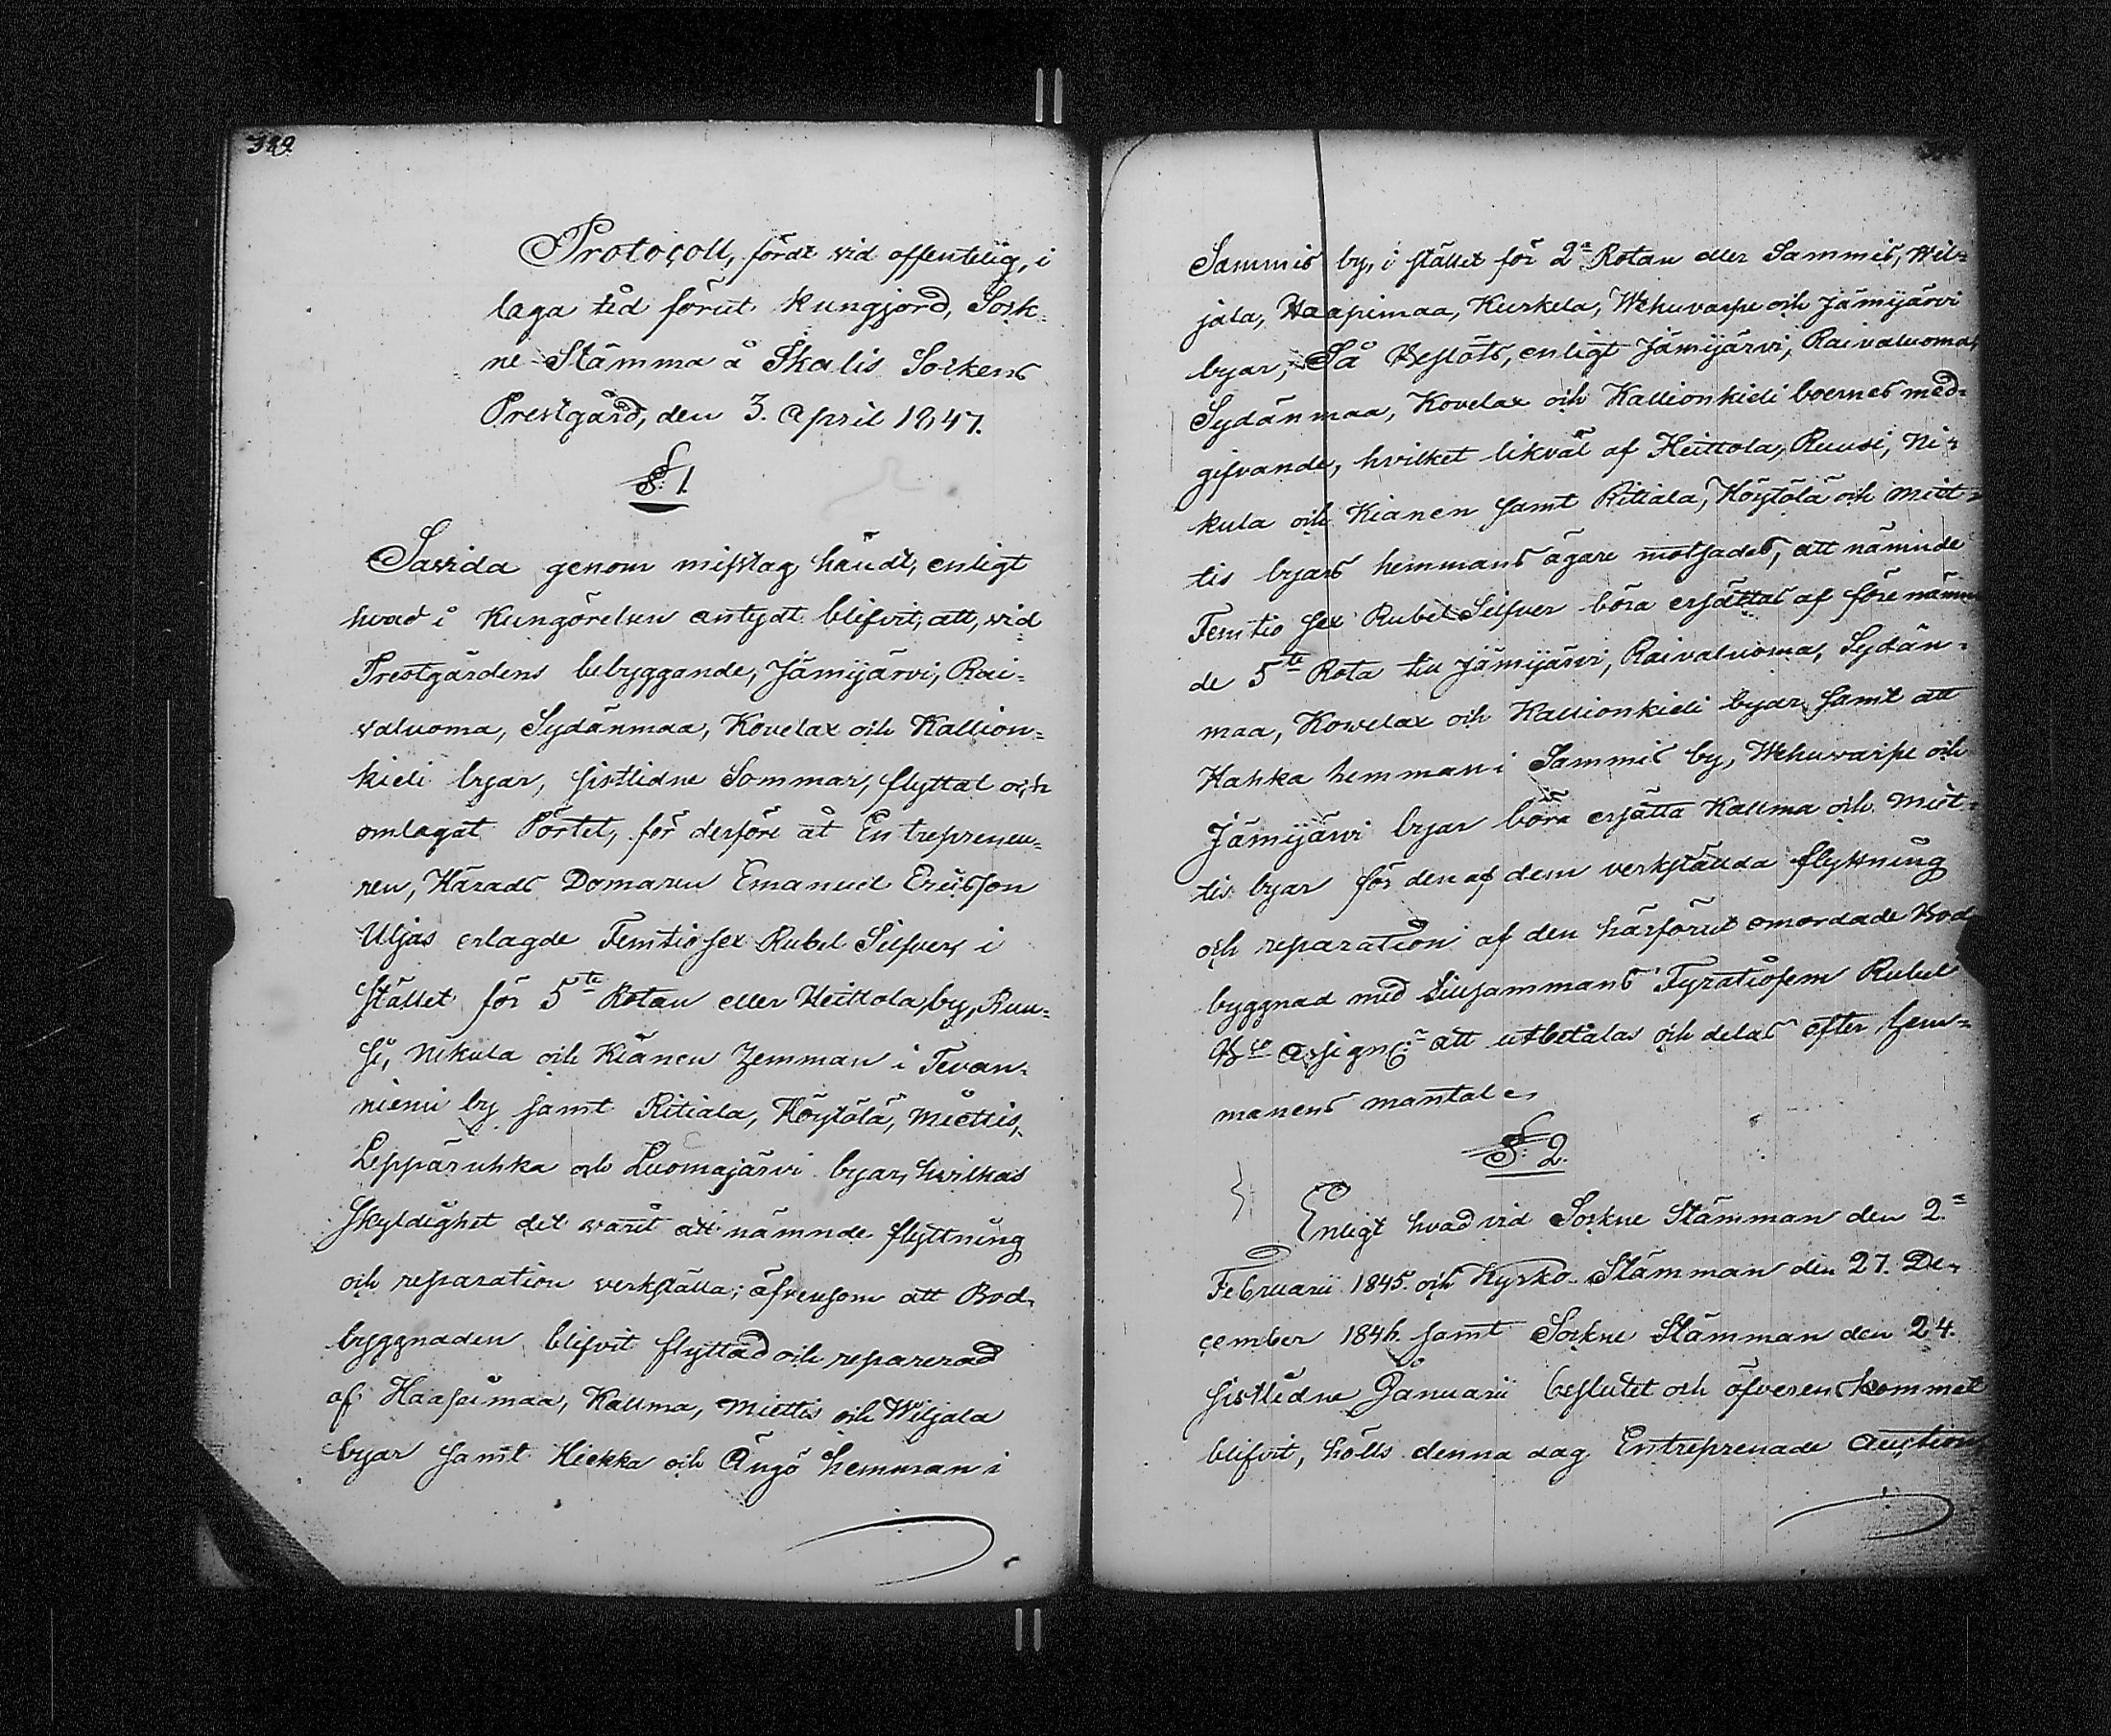 Protocoll, fördt vid offentelig, i
laga tid förut kungjord, Sock-
ne-Stämma å Ikalis Sockens
Prestgård, den 3. April 1847.
§. 1.
Såvida genom misstag händt, enligt
hvad i Kungörelsen antydt blifvit, att, vid
Prestgårdens bebyggande, Jämijärvi, Rai-
valuoma, Sydänmaa, Kovelax och Kallion-
kieli byar, sistlidne Sommar, flyttat och
omlagat Pörtet, för derföre åt Entrepreneu-
ren, Härads Domaren Emanuel Ericsson
Uljas erlagde Femtiosex Rubel Silfver, i
stället för 5te Rotan eller Heittola by, Ruu-
si, Nikula och Kianen hemman i Tevan-
niemi by samt Ritiala, Höytölä, Miettis,
Leppäruhka och Luomajärvi byar, hvilkas
skyldighet det varit att nämnde flyttning
och reparation verkställa; äfvensom att Bod-
byggnaden blifvit flyttad och reparerad
af Haapimaa, Kallma, Miettis och Wiljala
byar samt Hiekka och Ängö hemman i
Sammis by, i stället för 2a Rotan eller Sammis, Wil-
jala, Haapimaa, Kurkela, Wehuvarpe och Jämijärvi
byar; Så Beslöts, enligt Jämijärvi, Raivaluoma,
Sydänmaa, Kovelax och Kallionkieli boernes med-
gifvande, hvilket likväl af Heittola, Ruusi, Ni-
kula och Kianen samt Ritiala, Höytölä och Miet-
tis byars hemmans ägare motsades, att nämnde
Femtio sex Rubel Silfver böra ersättas af förenämn-
de 5te Rota till Jämijärvi, Raivaluoma, Sydän-
maa, Kowelax och Kallionkieli byar, samt att
Hahka hemman i Sammis by, Wehuvarpe och
Jämijärvi byar böra ersätta Kallma och Miet-
tis byar för den af dem verkställda flyttning
och reparation af den härförut omordade Bod-
byggnad med tillsammans Fyratiofem Rubel
Bco Assign. att utbetalas och delas efter hem-
manens mantal.
§. 2.
Enligt hvad vid Sockne Stämman den 2.
Februarii 1845. och Kyrko-Stämman den 27. De-
cember 1846. samt Sockne Stämman den 24.
sistlidne Januarii beslutet och öfverenskommet
blifvit, hölls denna dag Entreprenade Auction,